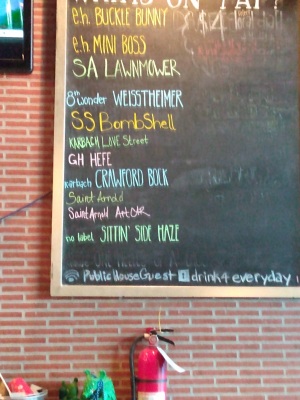 WHAT'S ON TAP?
e.h. BUCKLE BUNNY
e.h. MINI BOSS
SA LAWNMOWER
8th wonder WEISSTHEIMER
SS BombShell
KARBACH LOVE Street
GH HEFE
Karbach CRAWFORD BOCK
Saint Arnold
Saint Arnold Art Car
no label SITTIN' SIDE HAZE
PublicHouseGuest drink4everyday